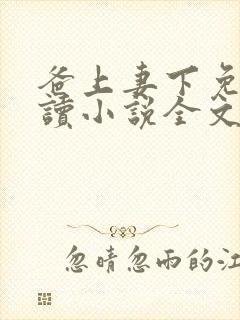 爸上妻下免
讀小説全文
忽晴忽雨的江